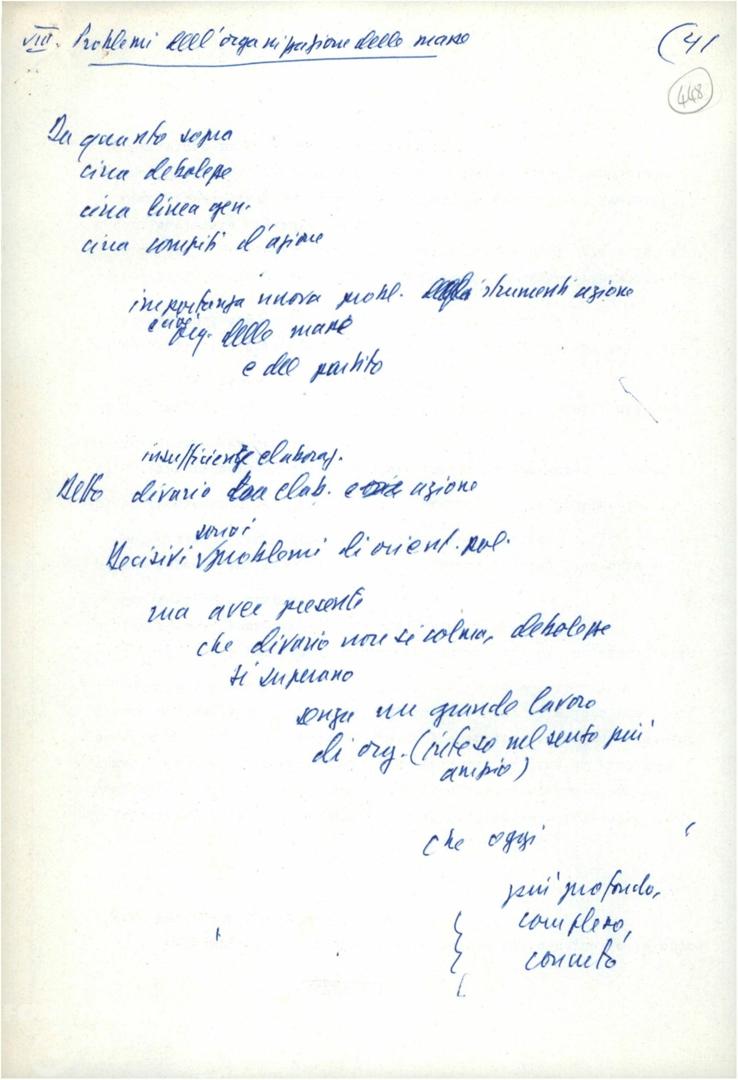 VIII. Problemi dell'organizzazione delle masse (41
448
Da quanto sopra
circa debolezze
circa linea gen.
circa compiti d'azione
importanza nuova probl. strumenti azione
e cioè org. delle masse
e del partito
insufficiente elaboraz.
Detto divario elab. azione
Decisivi sono i problemi di orient. pol.
ma aver presente
che divario non si colma, debolezze
si superano
senza un grande lavoro
di org. (inteso nel senso più
ampio)
che oggi
più profondo,
complesso,
concreto